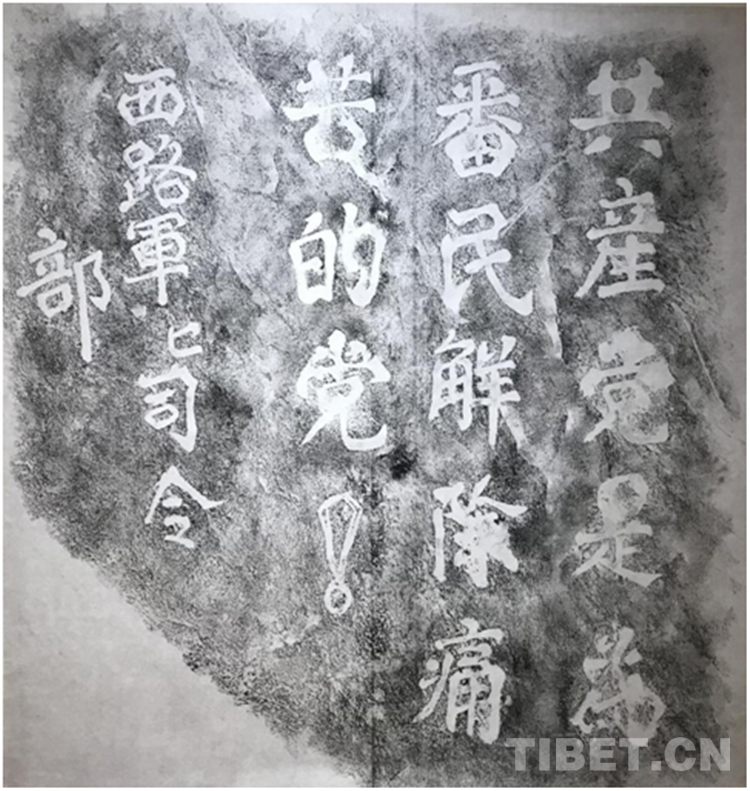 共産党是為
番民觧除痛
苦的党！
西路軍上司令
部
TIBET.CN